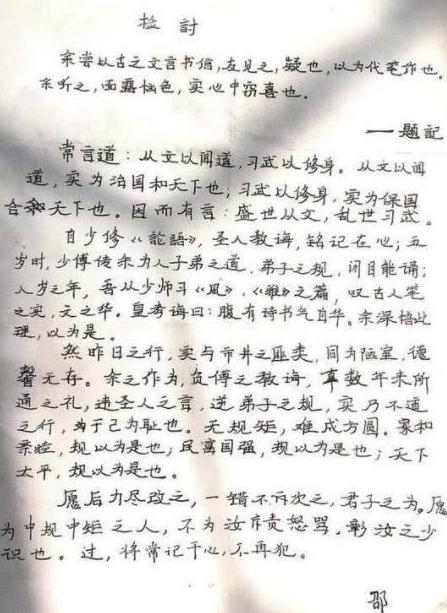 检讨
余尝以古之文言书信,左见之,疑也,以为代笔作也.
余听之,面露恼色,实心中窃喜也。
——题记
常言道：从文以闻道，习武以修身。从文以闻
道，实为治国和天下也；习武以修身，实为保国
合天下也。因而有言：盛世从文，乱世习武。
自少修《論語》，圣人教诲，铭记在心；五
岁时，少傅传余为人子弟之道，弟子之规，闭目能诵；
八岁之年，吾从少师习《风》，《雅》之篇，叹古人笔
之实，文之华。皇考诲曰：腹有诗书气自华。余深悟此
理，以为是。
然昨日之行，实与市井之匪类，同为陋室，德
馨无存。余之作为，负傅之教诲，辜数年来所
通之礼，违圣人之言，逆弟子之规，实乃不道
之行，为于己为耻也。无规矩，难成方圆。家和
亲睦，规以为是也；民富国强，规以为是也；天下
太平，规以为是也。
愿后力尽改之，一错不许次之，君子之为。愿
为中规中矩之人，不为汝斥责怒骂，彰汝之少
识也。过，将常记于心，不再犯。
邵